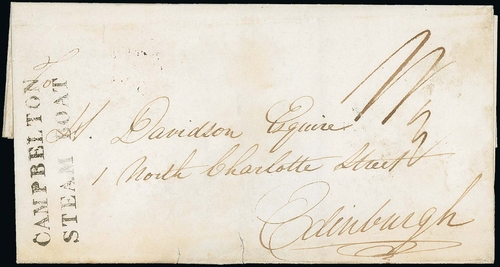 CAMPBELTON
STEAM BOAT
To
W. Davidson Equire
1 North Charlotte Street
Edinburgh